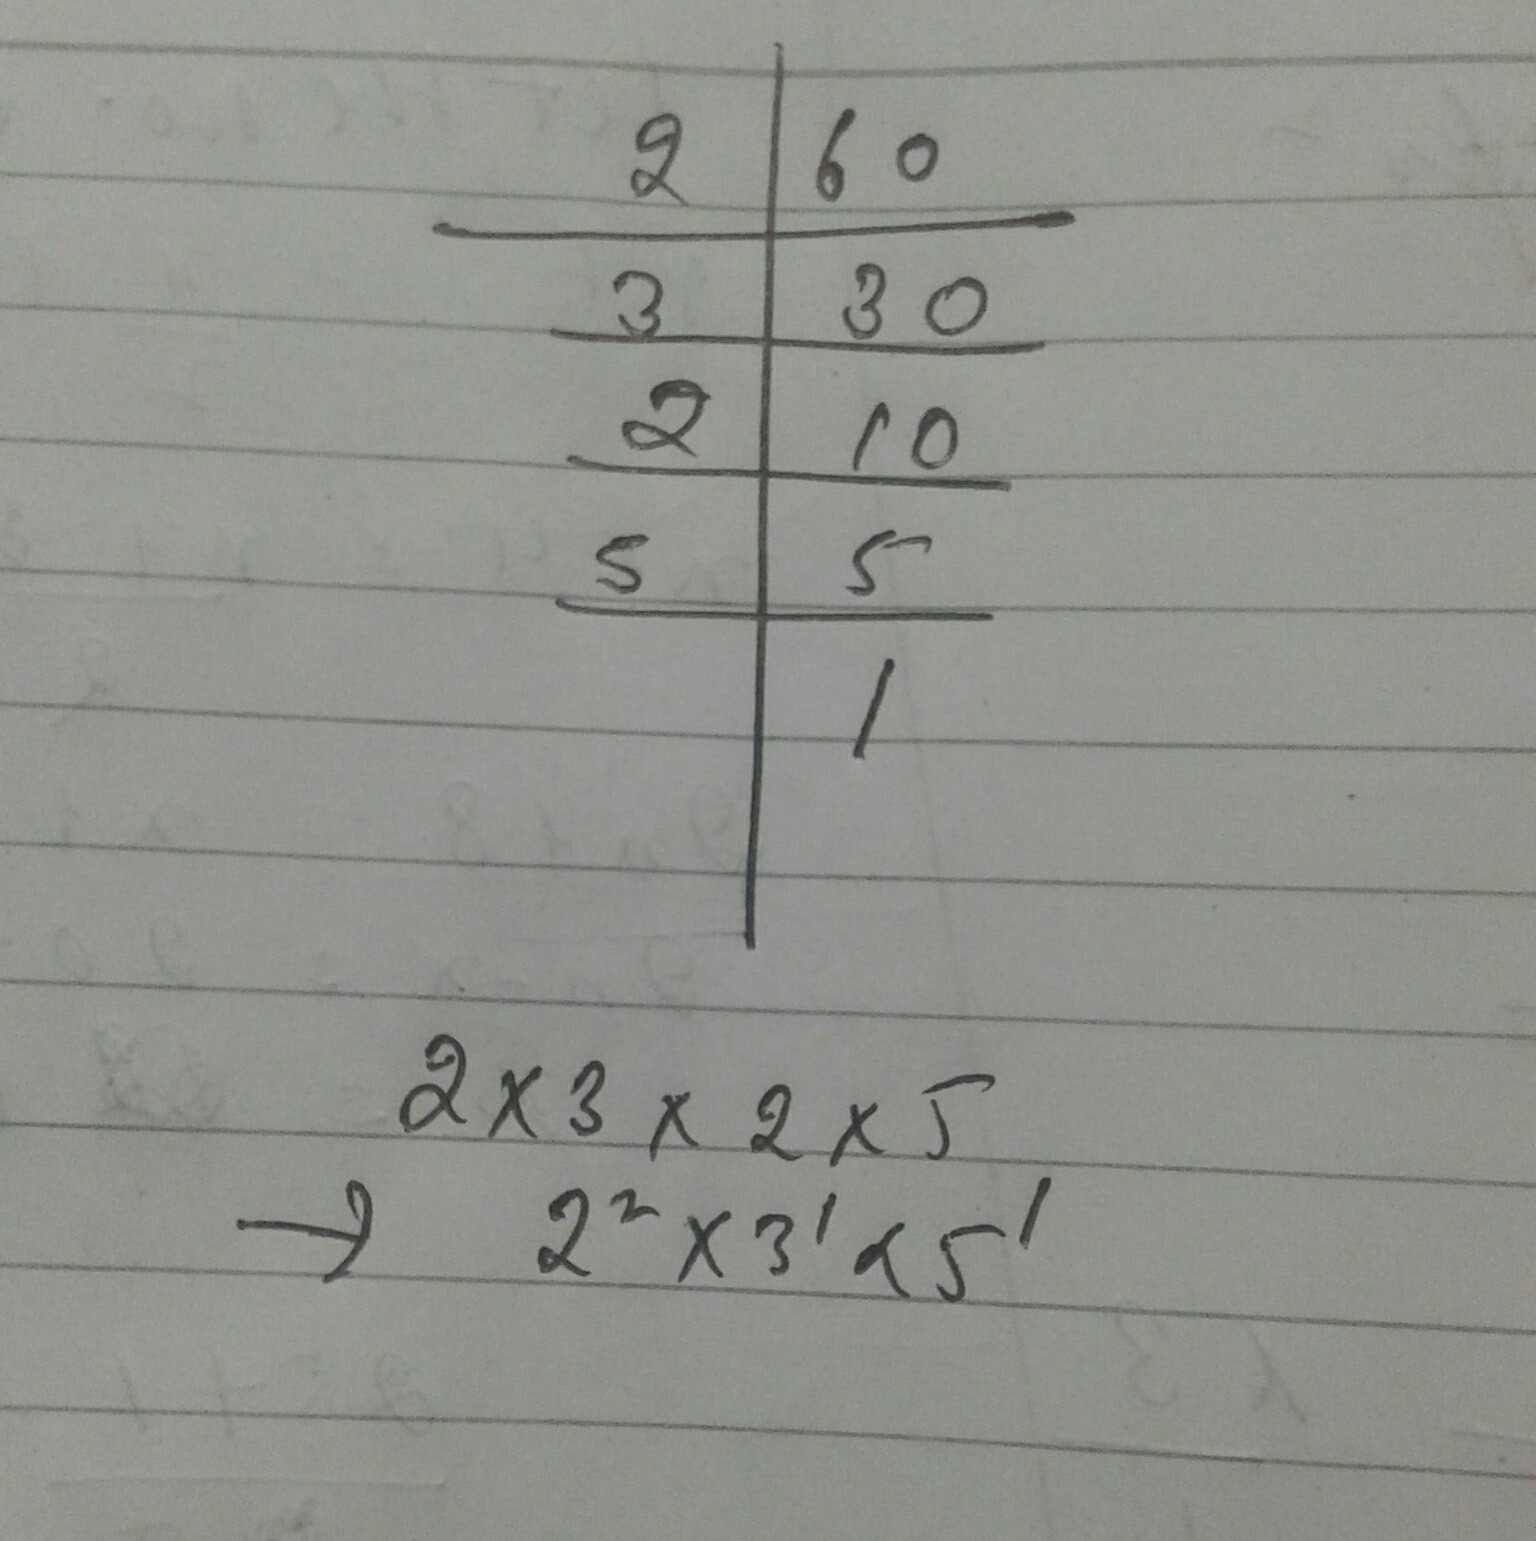 2 | 60
3 | 30
2 | 10
5 | 5
1
2 x 3 x 2 x 5
→ 2² x 3¹ x 5¹